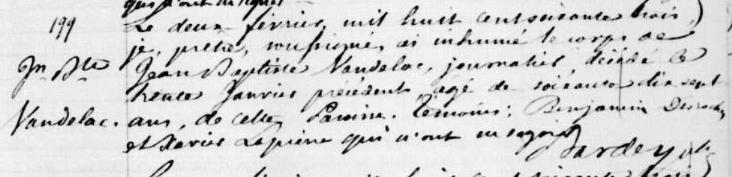 qui n'ont su signer
199
Le deux février, mil huit cent soixante trois,
je, prêtre, soussigné, ai inhumé le corps de
Jn Bte
Jean Baptiste Vandelac, journalier décédé le
trente Janvier précédent agé de soixante dix sept
Vandelac.
ans, de cette Paroisse. Témoins: Benjamin
et Xavier Lapierre qui n'ont su signer
Tardey ptre